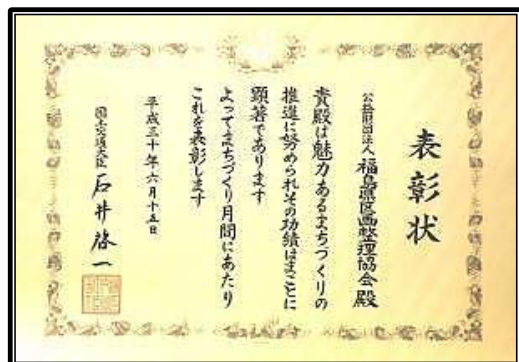 表彰状
公益財団法人 福島県区画整理協会 殿
貴殿は魅力あるまちづくりの
推進に努められその功績はまことに
顕著であります
よってまちづくり月間にあたり
これを表彰します
平成三十年六月十五日
国土交通大臣 石井啓一